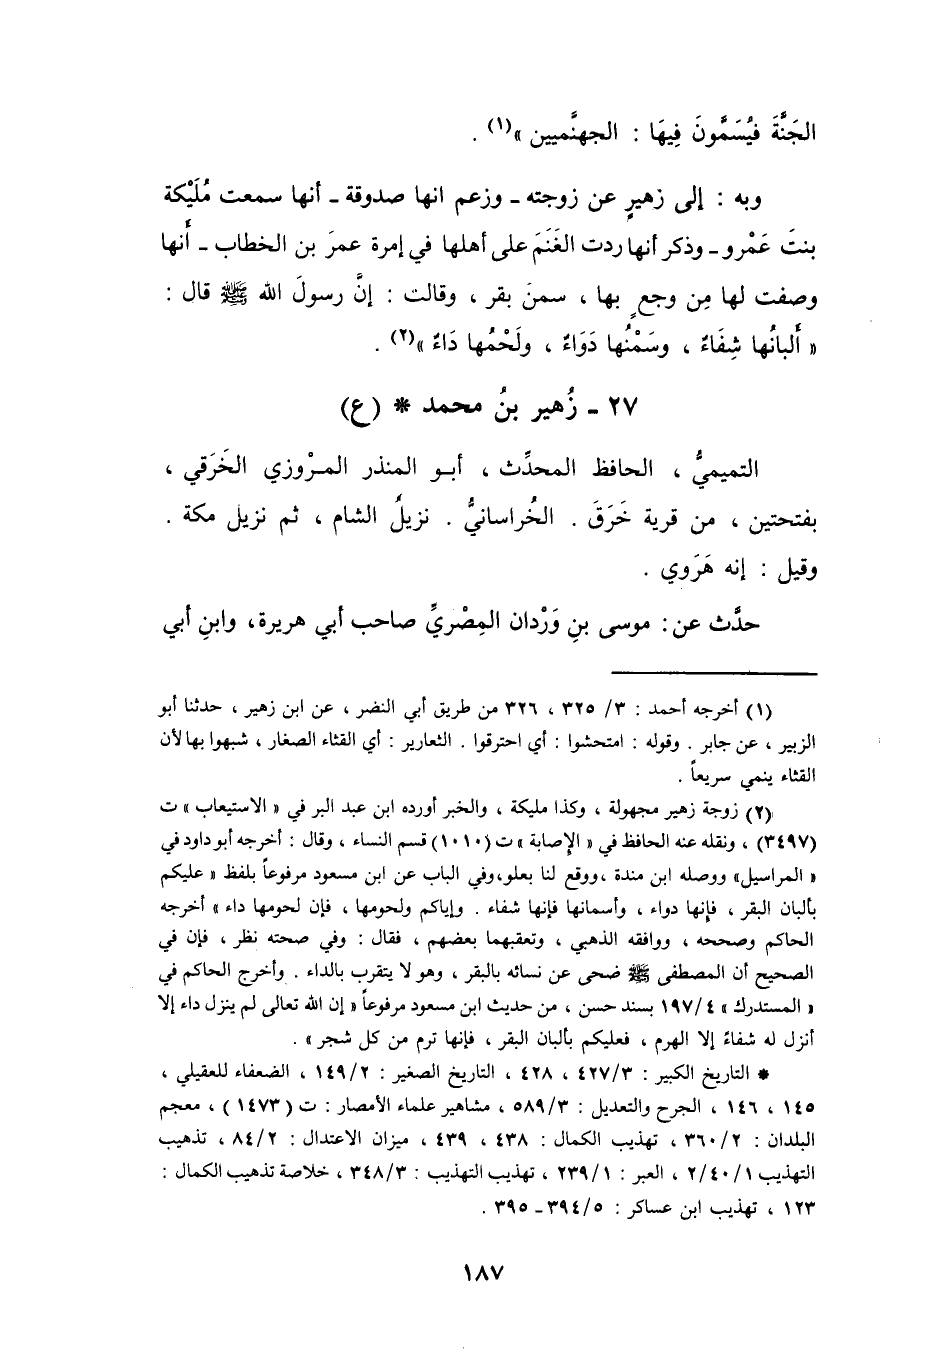 الجَنَّةَ فيُسَمَّونَ فِيهَا : الجهنَّميين »(١) .
وبه : إلى زهيرٍ عن زوجته ـ وزعم انها صدوقة ـ أنها سمعت مُلَيْكة
بنتَ عَمْرو ـ وذكر أنها ردت الغَنَمَ على أهلها في إمرة عمرَ بن الخطاب ـ أَنها
وصفت لها مِن وجعٍ بها ، سمنَ بقر ، وقالت : إنَّ رسولَ الله ﷺ قال :
« أَلبانُها شِفَاءٌ ، وسَمْنُها دَوَاءٌ ، ولَحْمُها دَاءٌ »(٢) .
٢٧ ـ زُهير بنُ محمد * (ع)
التميميُّ ، الحافظ المحدِّث ، أبو المنذر المرْوزي الخَرَقي ،
بفتحتين ، من قرية خَرَقَ . الخُراسانيُّ . نزيلُ الشام ، ثم نزيل مكة .
وقيل : إنه هَرَوي .
حدَّث عن: موسى بنِ وَرْدان المِصْريِّ صاحب أبي هريرة، وابنِ أبي
(١) أخرجه أحمد : ٣/ ٣٢٥ ، ٣٢٦ من طريق أبي النضر ، عن ابن زهير ، حدثنا أبو
الزبير ، عن جابر . وقوله : امتحشوا : أي احترقوا . الثعارير : أي القثاء الصغار ، شبهوا بها لأن
القثاء ينمي سريعاً .
(٢) زوجة زهير مجهولة ، وكذا مليكة ، والخبر أورده ابن عبد البر في « الاستيعاب » ت
(٣٤٩٧) ، ونقله عنه الحافظ في « الإصابة » ت (١٠١٠) قسم النساء ، وقال : أخرجه أبو داود في
« المراسيل» ووصله ابن مندة ،ووقع لنا بعلو،وفي الباب عن ابن مسعود مرفوعاً بلفظ « عليكم
بألبان البقر ، فإنها دواء ، وأسمانها فإنها شفاء . وإياكم ولحومها ، فإن لحومها داء » أخرجه
الحاكم وصححه ، ووافقه الذهبي ، وتعقبهما بعضهم ، فقال : وفي صحته نظر ، فإن في
الصحيح أن المصطفى ﷺ ضحى عن نسائه بالبقر ، وهو لا يتقرب بالداء . وأخرج الحاكم في
« المستدرك » ١٩٧/٤ بسند حسن ، من حديث ابن مسعود مرفوعاً « إن الله تعالى لم ينزل داء إلا
أنزل له شفاءً إلا الهرم ، فعليكم بألبان البقر ، فإنها ترم من كل شجر » .
* التاريخ الكبير : ٤٢٧/٣ ، ٤٢٨ ، التاريخ الصغير : ١٤٩/٢ ، الضعفاء للعقيلي ،
١٤٥ ، ١٤٦ ، الجرح والتعديل : ٥٨٩/٣ ، مشاهير علماء الأمصار : ت ( ١٤٧٣ ) ، معجم
البلدان : ٣٦٠/٢ ، تهذيب الكمال : ٤٣٨ ، ٤٣٩ ، ميزان الاعتدال : ٨٤/٢ ، تذهيب
التهذيب ٢/٤٠/١ ، العبر : ٢٣٩/١ ، تهذيب التهذيب : ٣٤٨/٣ ، خلاصة تذهيب الكمال :
١٢٣ ، تهذيب ابن عساكر : ٣٩٤/٥ ـ ٣٩٥ .
١٨٧